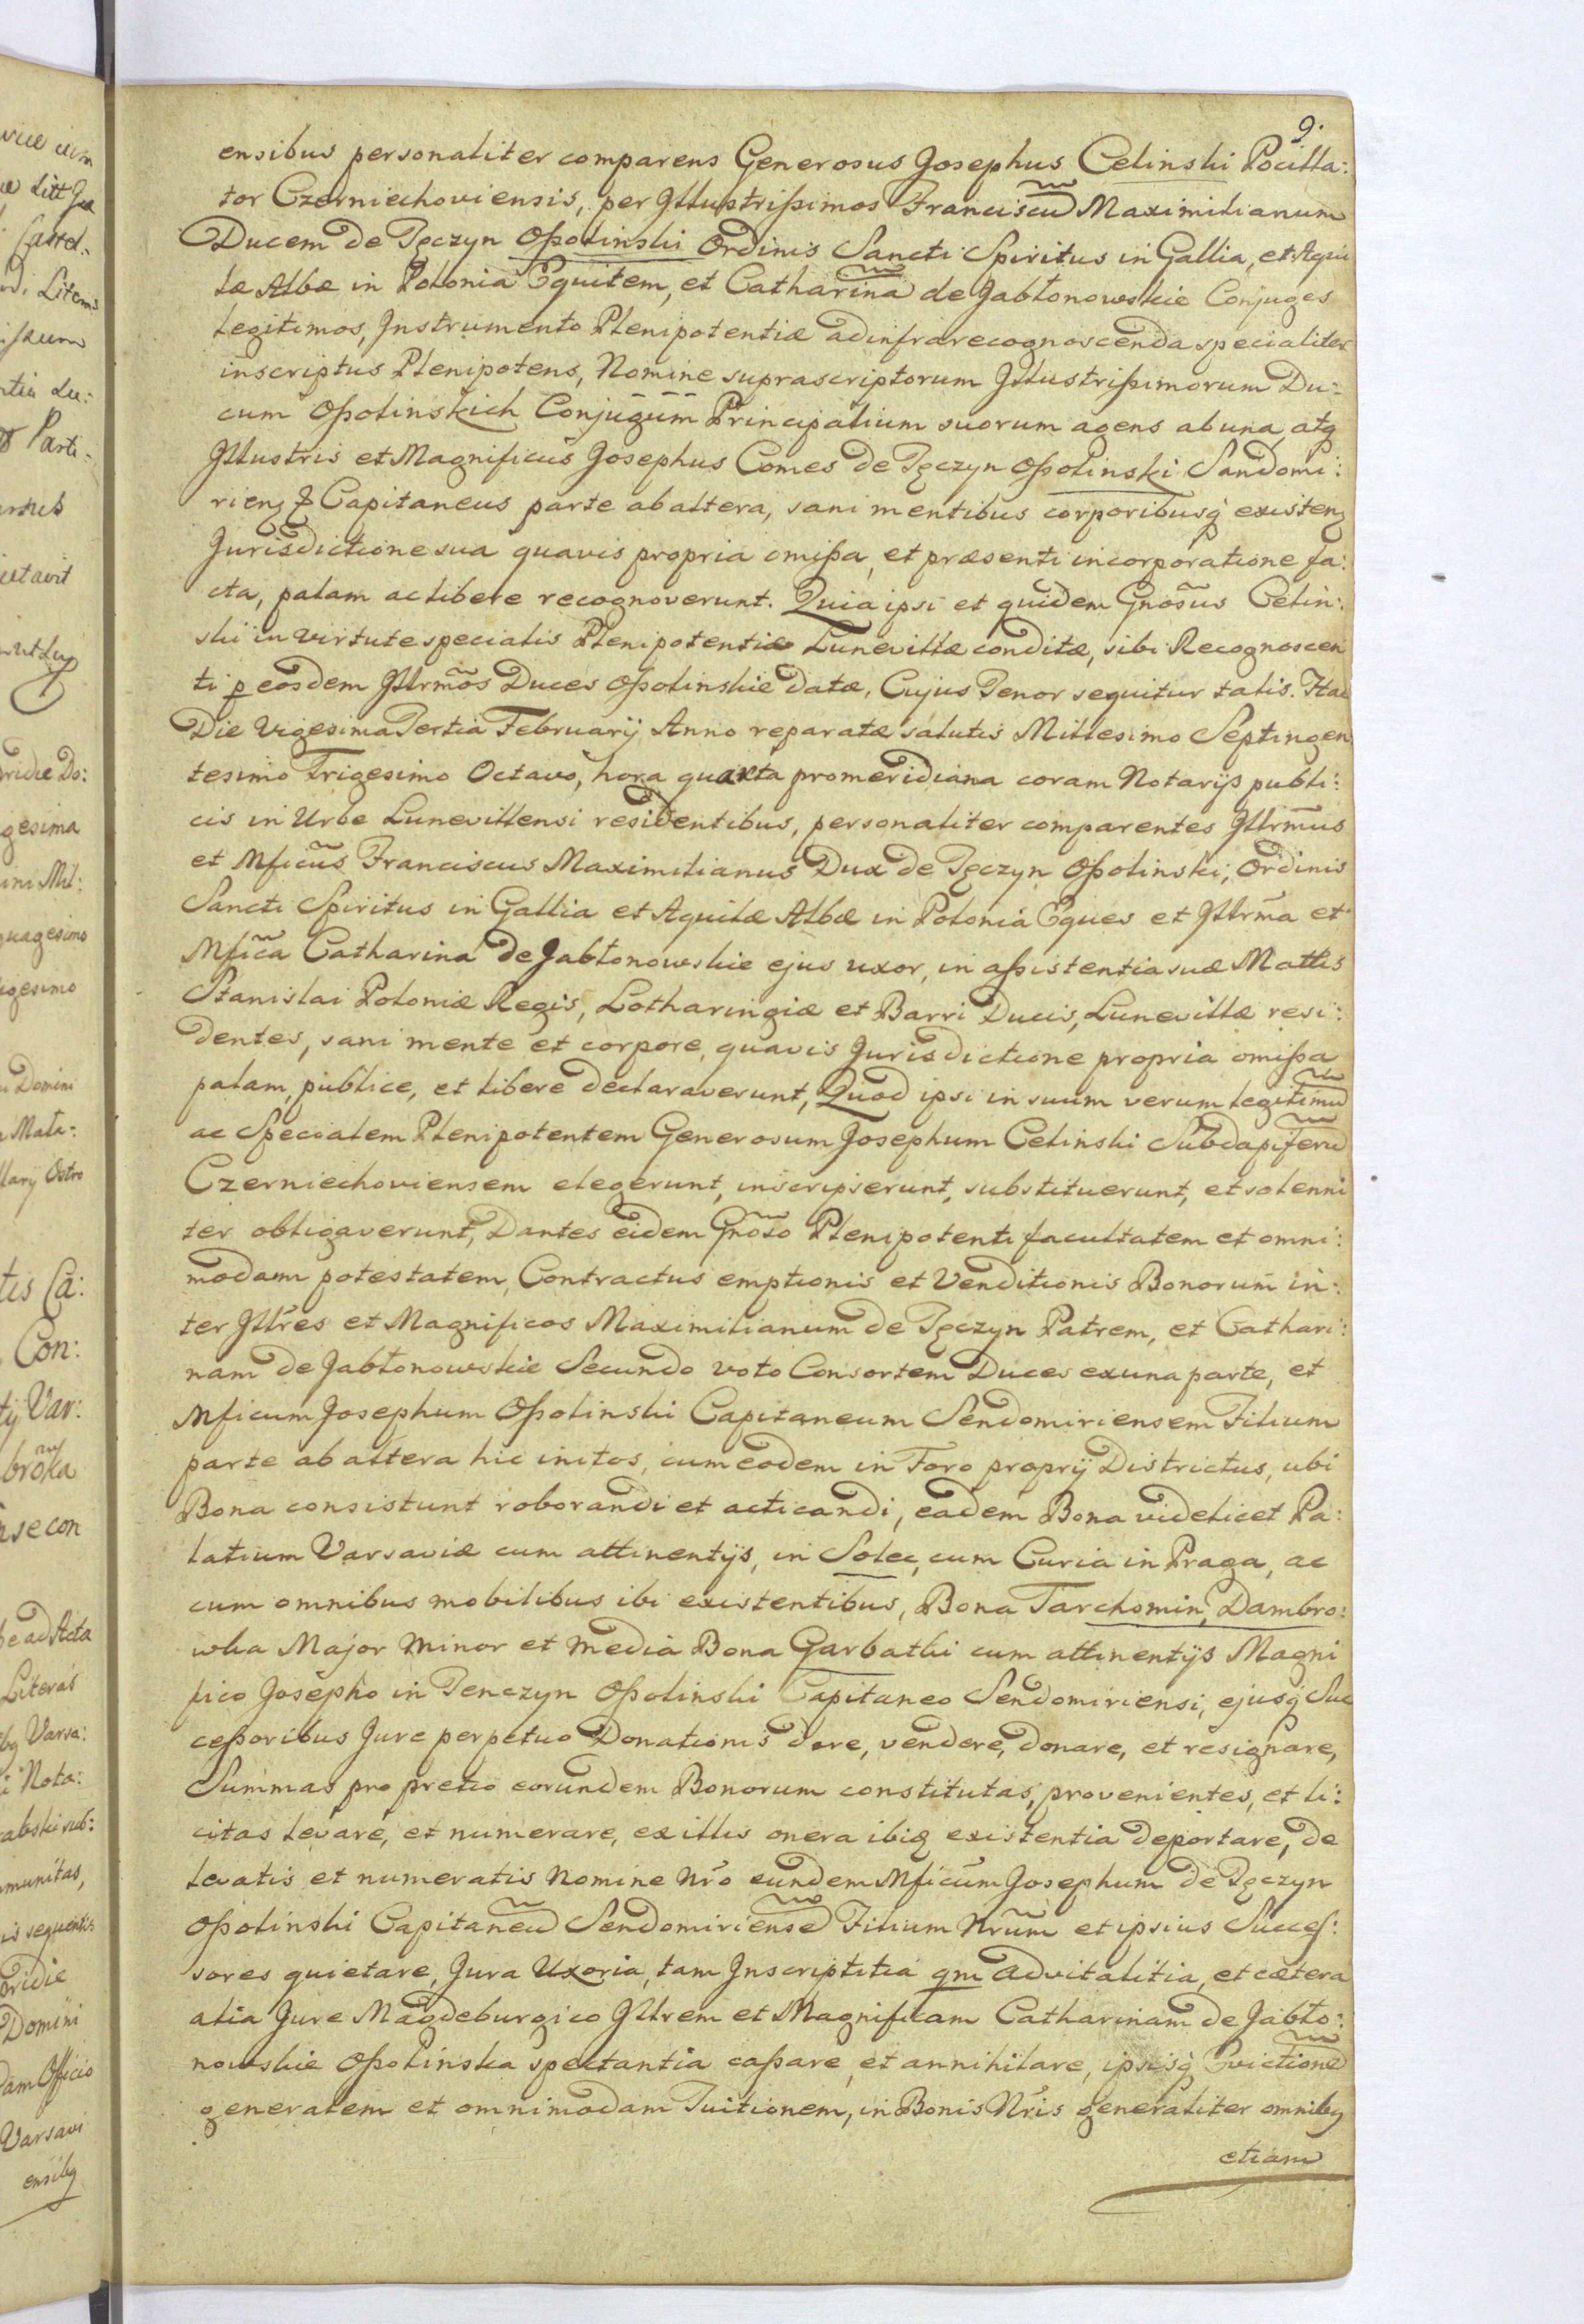 9.
ensibus personaliter comparens Generosus Josephus Celinski Pocilla:
tor Czerniechoviensis, per Jllustrißimos Franciscũ Maximilianum
Ducem de Tęczyn Oßolinski Ordinis Sancti Spiritus in Gallia, et Aqui
læ Albæ in Polonia Equitem, et Catharinã de Jabłonowskie Conjuges
legitimos, Jnstrumento Plenipotentiæ ad infra recognoscenda specialiter
inscriptus Plenipotens, Nomine suprascriptorum Jllustrißimorum Du:
cum Oßolinskich Conjugum Principalium suorum agens ab una, atq
Jllustris et Magnificus Josephus Comes de Tęczyn Oßolinski Sandomi:
rienz Capitaneus parte ab altera, sani mentibus corporibusq́ existenz
Jurisdictione sua quavis propria omißa, et præsenti incorporatione fa:
cta, palam ac libere recognoverunt. Quia ipsi et quidem Gnosũs Celin:
ski in virtute specialis Plenipotentiæ Lunevillæ conditæ, sibi Recognoscen
ti p eosdem Jllrmõs Duces Oßolinskie datæ, Cujus Tenor sequitur talis. Hac
Die Vigesima Tertia Februarij Anno reparatæ salutis Millesimo Septingen
tesimo Trigesimo Octavo, hora quarta promeridiana coram Notarijs publi:
cis in Urbe Lunevillensi residentibus, personaliter comparentes Jllrmũs
et Mficũs Franciscus Maximilianus Dux de Tęczyn Oßolinski, Ordinis
Sancti Spiritus in Gallia et Aquilæ Albæ in Polonia Eques et Jllrm̃a et
Mficã Catharina de Jabłonowskie ejus uxor, in aßistentia suæ Mattis
Stanislai Poloniæ Regis, Lotharingiæ et Barri Ducis, Lunevillæ resi:
dentes, sani mente et corpore, quavis Jurisdictione propria omißa
palam, publice, et libere declaraverunt, Quod ipsi in suum verum legitimũ
ac Specialem Plenipotentem Generosum Josephum Celinski Subdapiferũ
Czerniechoviensem elegerunt, inscripserunt, substituerunt, et solenni
ter obligaverunt, Dantes eidem Gnõso Plenipotenti facultatem et omni:
modam potestatem, Contractus emptionis et Venditionis Bonorum in:
ter Jllres et Magnificos Maximilianum de Tęczyn Patrem, et Cathari:
nam de Jabłonowskie Secundo voto Consortem Duces ex una parte, et
Mficum Josephum Oßolinski Capitaneum Sendomiriensem Filium
parte ab altera hic initos, cum eodem in Foro proprij Districtus, ubi
Bona consistunt roborandi et acticandi, eadem Bona videlicet Pa:
latium Varsaviæ cum attinentijs, in Solec, cum Curia in Praga, ac
cum omnibus mobilibus ibi existentibus, Bona Tarchomin, Dambro:
wka Major Minor et Media Bona Garbatki cum attinentijs Magni
fico Josepho in Tenczyn Oßolinski Capitaneo Sendomiriensi, ejusq́ Suc
ceßoribus Jure perpetuo Donationis dare, vendere, donare, et resignare,
Summas pro pretio eorundem Bonorum constitutas, provenientes, et li:
citas levare, et numerare, ex illis onera ibiq existentia deportare, de
levatis et numeratis Nomine Nr̃o eundem Mficum Josephum de Tęczyn
Oßolinski Capitaneũ Sendomiriensẽ Filium Nrũm et ipsius Succes:
sores quietare, Jura Uxoria, tam Jnscriptitia qm advitalitia, et cætera
alia Jure Magdeburgico Jllrem et Magnificam Catharinam de Jabło:
nowskie Oßolinska spectantia caßare, et annihilare, ipsisq́ Evictionẽ
generalem et omnimodam Tuitionem, in Bonis Nr̃is generaliter omnibq
etiam